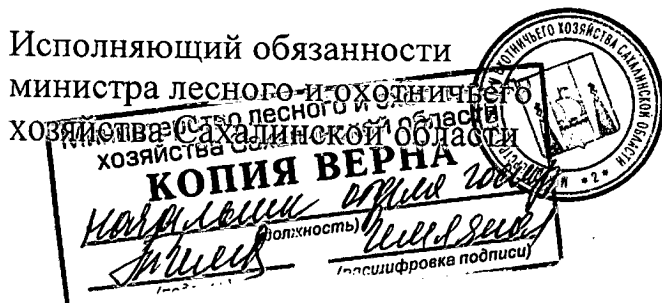 Исполняющий обязанности
министра лесного и охотничьего
хозяйства Сахалинской области
Министерство лесного и охотничьего
хозяйства Сахалинской области
КОПИЯ ВЕРНА
начальник отдела
(должность)
(расшифровка подписи)
ОХОТНИЧЬЕГО ХОЗЯЙСТВА САХАЛИНСКОЙ ОБЛАСТИ
*2*